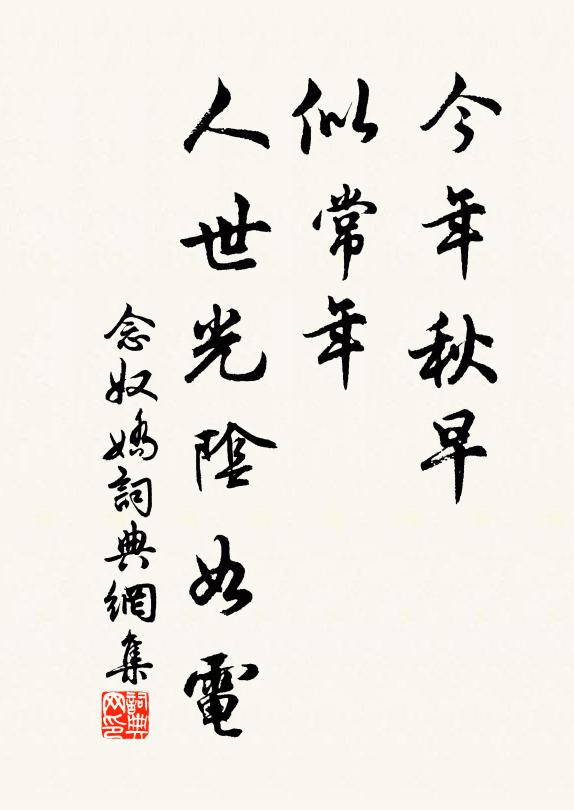 今年秋早
似常年
人世光陰如電
念奴嬌詞典網集
詞典網印